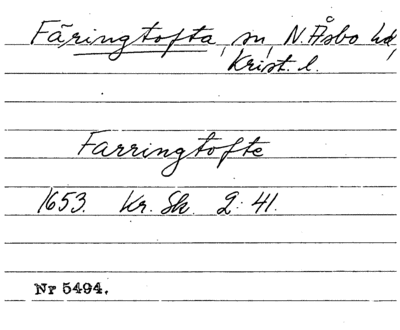 Färingtofta, sn, N. Åsbo hd,
Krist. l.
Farringtofte
1653. Kr. Sk. 2: 41.
Nr 5494.